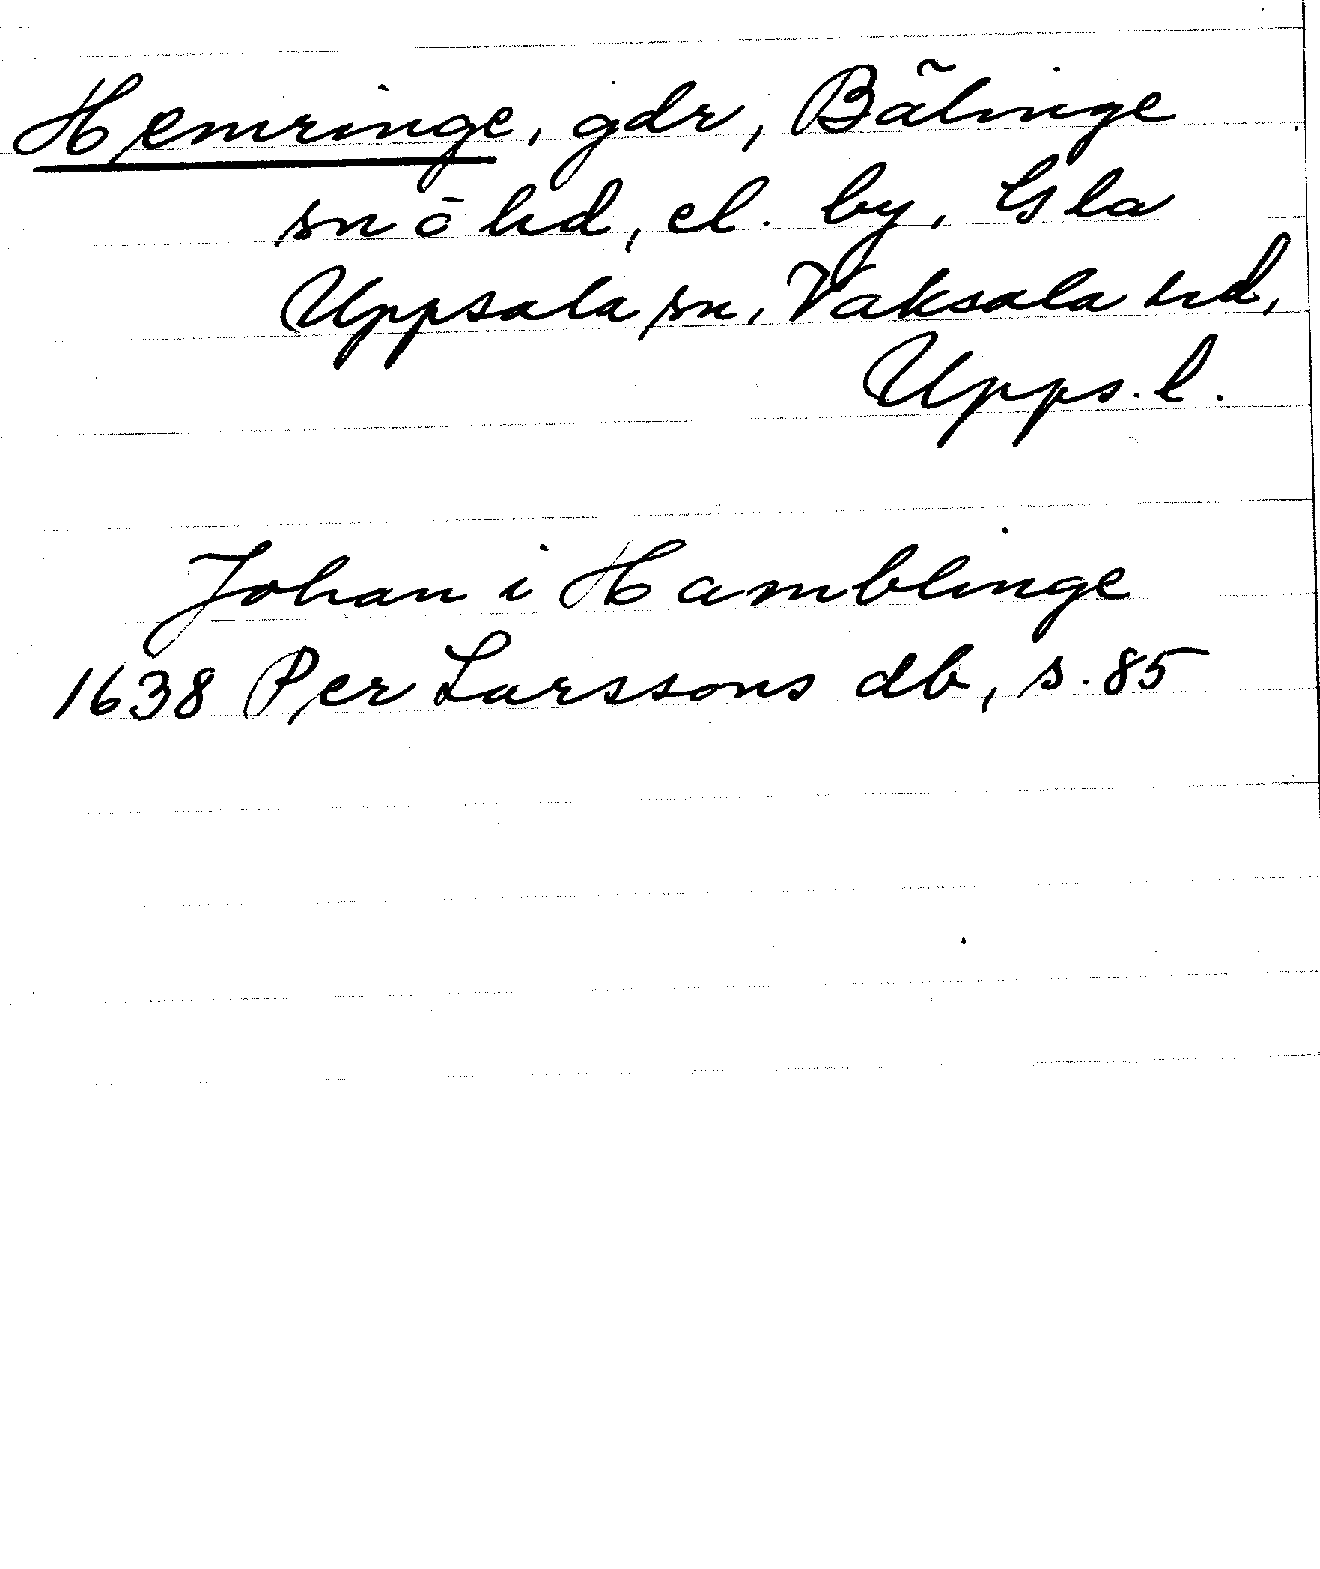 Hemringe, gdr, Bälinge
sn ö hd, el. by, Gla
Uppsala sn, Vaksala hd,
Upps. l.
Johan i Hamblinge
1638 Per Larssons db, s. 85